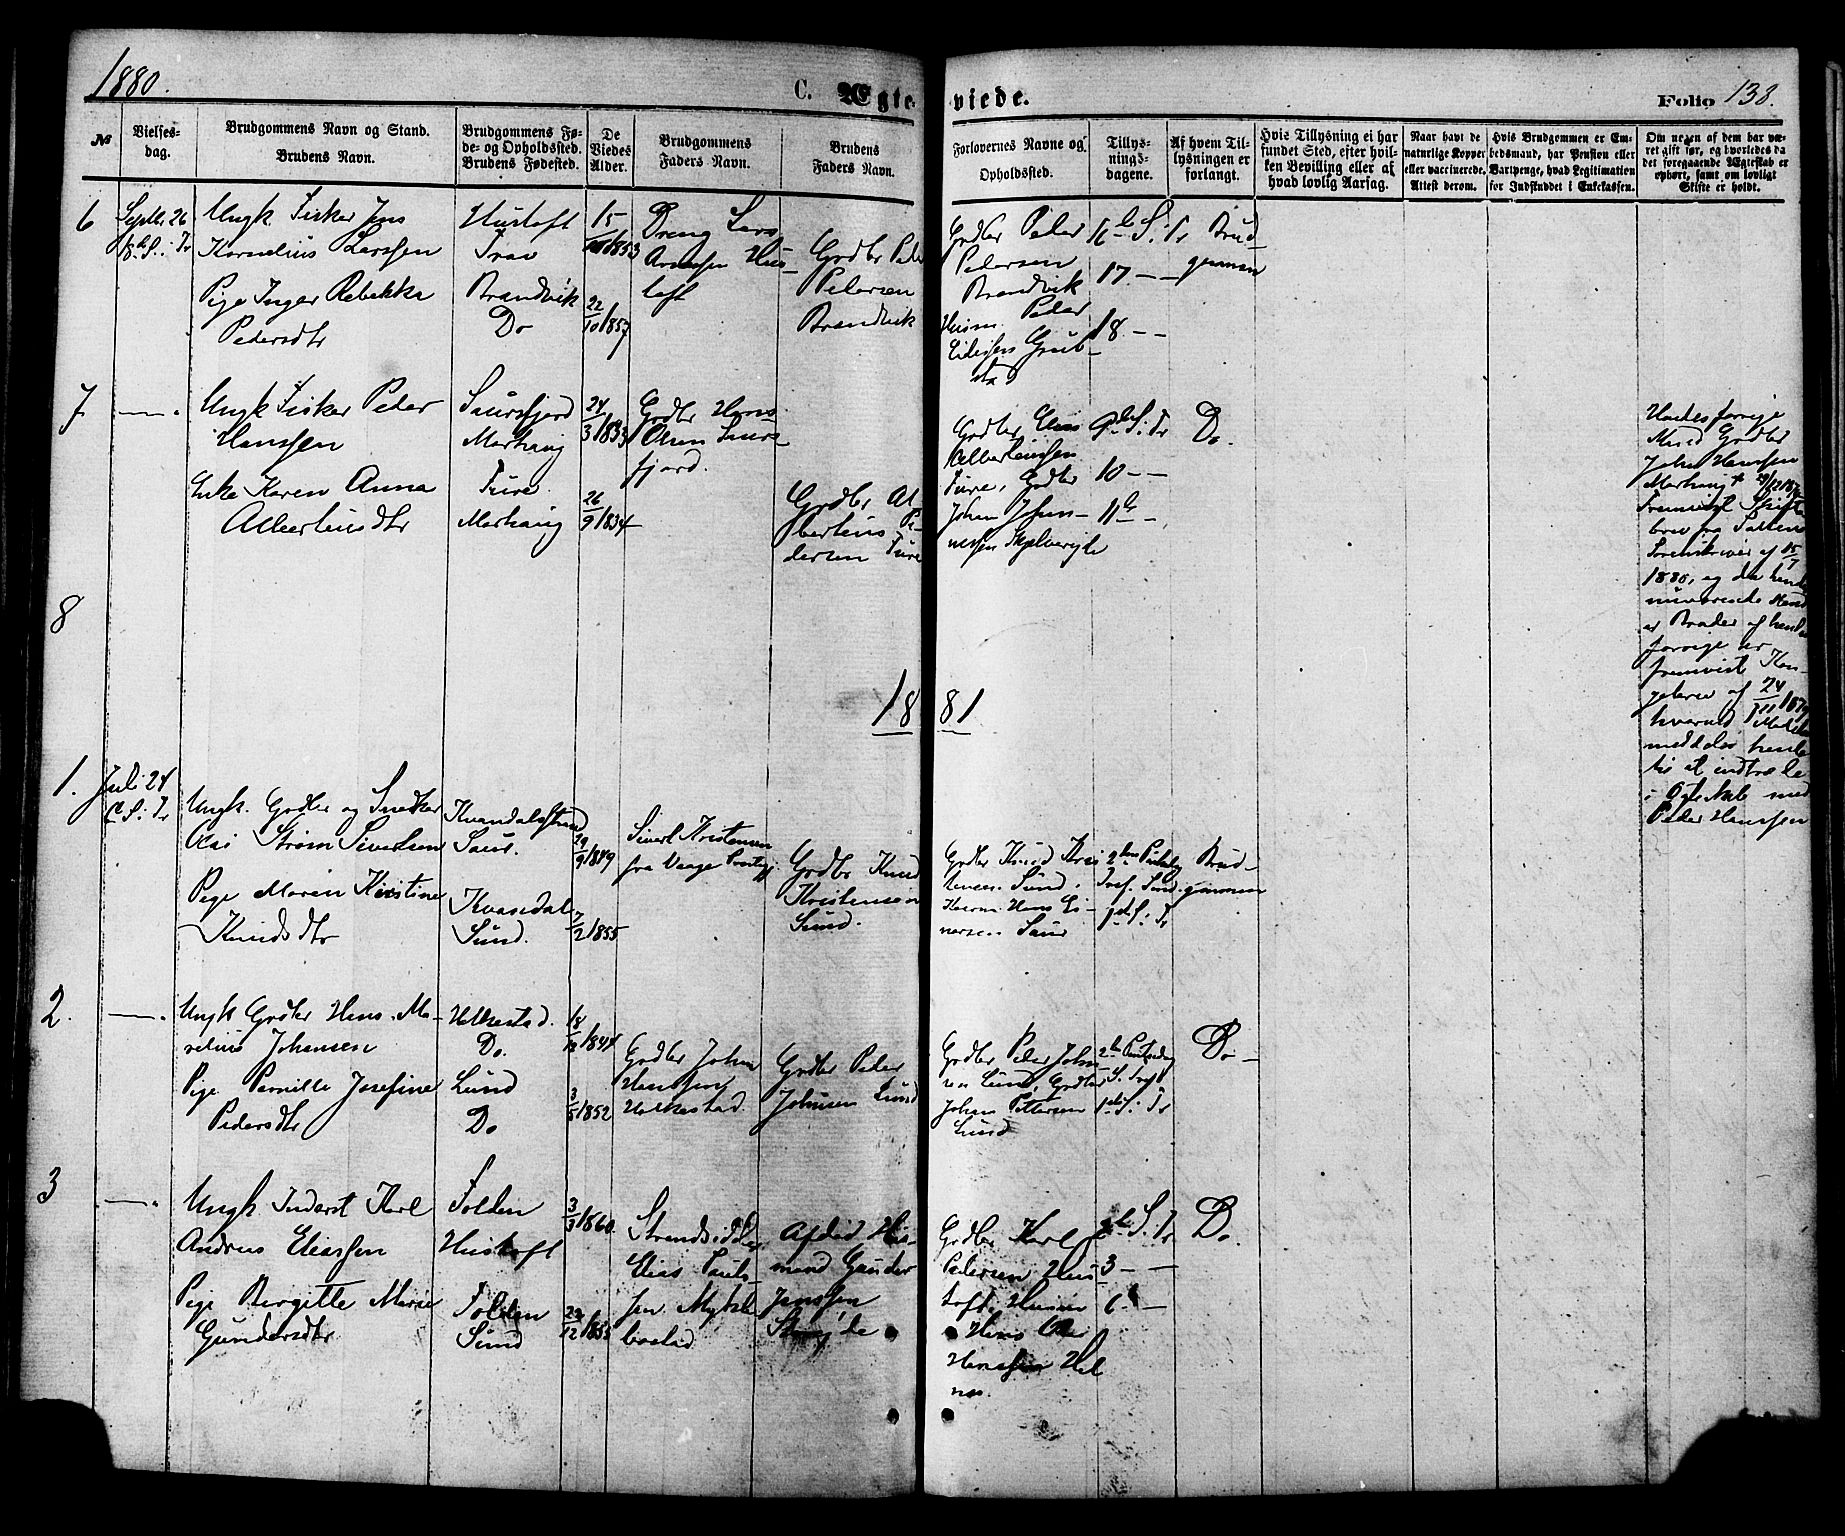 1880.
C. Ægteviede.
Folio 138.
№
Vielses-
dag.
Brudgommens Navn og Stand.
Brudens Navn.
Brudgommens Fø-
de- og Opholdssted.
Brudens Fødested.
De
Viedes
Alder.
Brudgommens
Faders Navn.
Brudens
Faders Navn.
Forlovernes Navne og
Opholdssted.
Tillys-
nings-
dagene.
Af hvem Til-
lysningen er
forlangt.
Hvis Tillysning ei har
fundet Sted, efter hvil-
ken Bevilling eller af
hvad lovlig Aarsag.
Naar havt de
naturlige Kopper
eller vaccinerede.
Attest derom.
Hvis Brudgommen er Em-
bedsmand, har Pension eller
Vartpenge, hvad Legitimation
for Indskuddet i Enkekassen.
Om nogen af dem har væ-
ret gift før, og hvorledes da
det foregaaende Ægteskab er
ophørt, samt om lovligt
Skifte er holdt.
6
Septbr 26
Ungk. Fisker Jens
Kornelius Larssen
Pige Inger Rebekka
Pedersdtr
Hustoft
Brandvik
Do
15 1853
22/10 1857
Dreng Lars
Arntsen Hus-
toft
Grdbr Peder
Pedersen
Brandvik
Grdbr Peder
Pedersen
Brandvik
Husm. Peder
16de S. Tr
17 — —
18 — —
Brud-
gommen
7
—
Ungk Fisker Peder
Hanssen
Enke Karen Anna
Albertinsdtr
Saursfjord
Marhaug
Ture
Marhaug
24/3 1833
26/9 1834
Grdbr Hans
Olsen Saurs-
fjord.
Grdbr Al-
bertinus Pe-
dersen Ture
Grdbr
Albertinssen
Ture, Grdbr
Johan Johan-
nessen
9de S. Tr
10 — —
11te —
Do.
Hendes forrige
Mand Grdbr
John Hanssen
Marhaug +
Fremvist Skifte-
brev fra Saltens
Sorenskriver af 15/7
1880, og da hendes
nuværende Mand
er Broder af hendes
forrige er
fremvist Kon-
gebrev af 24/11 1879
hvorved
meddeles hende
til at indtræde
i Ægteskab med
Peder Hanssen
8
1881
1.
Juli 24
6 S. Tr
Ungk. Grdbr og Snedker
Strøm Sivertsen
Pige Maren Kristine
Knudsdtr
Kvandalstrand
Saur.
Kvandal
Sund.
29/9 1849
7/2 1855
Sivert Kristensen
fra Vaage
Grdbr Knud
Kristensen
Sund.
Grdbr Knud Kris-
tensen Sund.
Hans Ei-
narsen Saur
1ste S. Tr
Brud-
gommen
2.
—
Ungk Grdbr Hans Ma-
relius Johansen
Pige Pernille Josefine
Pedersdtr
Holkestad.
Do.
Lund
Do
18/12 1844
3/5 1852
Grdbr Johan
Hanssen
Holkestad.
Grdbr Peder
Johnsen Lund
Grdbr Peder John-
sen Lund, Grdbr
Johan Pettersen
Lund
1ste S. Tr
Do —
3
—
Ungk. Inderst Karl
Andreas Eliassen
Pige Birgitte Marie
Gundersdtr.
Folden
Hustoft
Folden
Sund
3/3 1860
22/12 1855
Strandsidder
Elias Pauls-
sen Myklebostad
Afdød Hus-
mand Gunder
Jenssen
Grdbr Karl
Pedersen Hus-
toft, Husm
Hans
Hanssen Hel-
nes.
2de S. Tr
3 — —
6 —
Do.